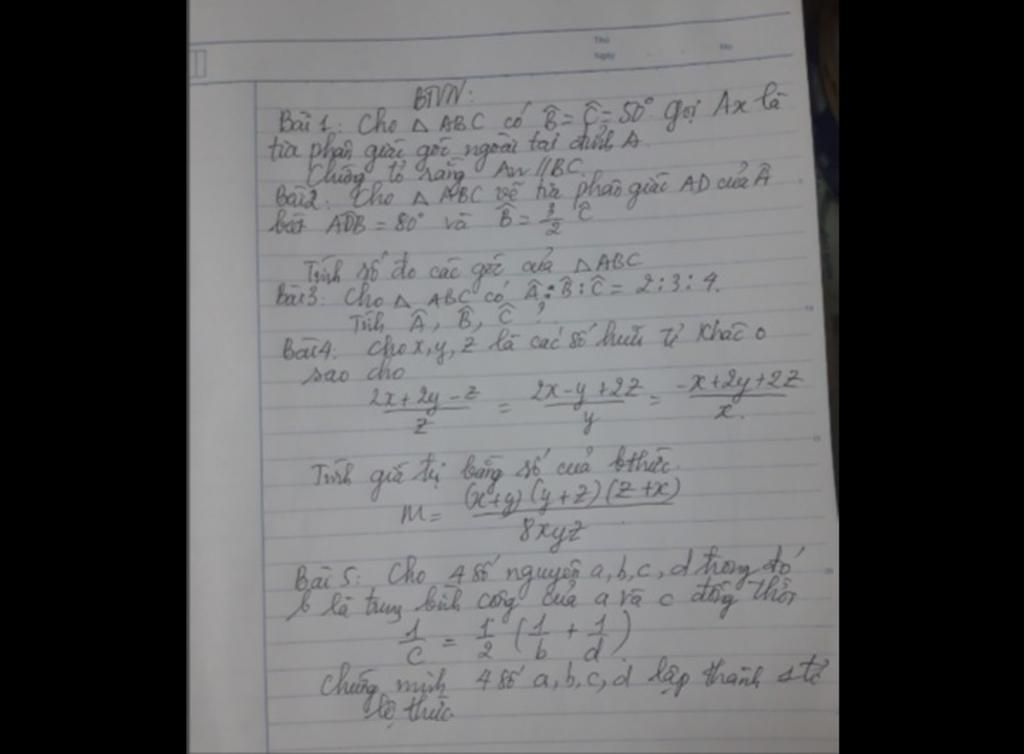 Thứ
Ngày
No
BTVN:
Bài 1: Cho △ ABC có B̂ = Ĉ = 50° gọi Ax là
tia phân giác góc ngoài tại đỉnh A.
Chứng tỏ rằng Ax // BC.
Bài 2: Cho △ ABC vẽ tia phân giác AD của Â
biết ADB = 80° và B̂ = 3/2 Ĉ
Tính số đo các góc của △ ABC
Bài 3: Cho △ ABC có Â : B̂ : Ĉ = 2 : 3 : 4.
Tính Â, B̂, Ĉ ?
Bài 4: Cho x, y, z là các số hữu tỉ khác 0
sao cho
(2x + 2y - z)/z = (2x - y + 2z)/y = (-x + 2y + 2z)/x.
Tính giá trị bằng số của bthức.
M = (x+y)(y+z)(z+x)/8xyz
Bài 5: Cho 4 số nguyên a, b, c, d trong đó
b là trung bình cộng của a và c đồng thời
1/c = 1/2 (1/b + 1/d)
Chứng minh 4 số a, b, c, d lập thành 1 tỉ
lệ thức.